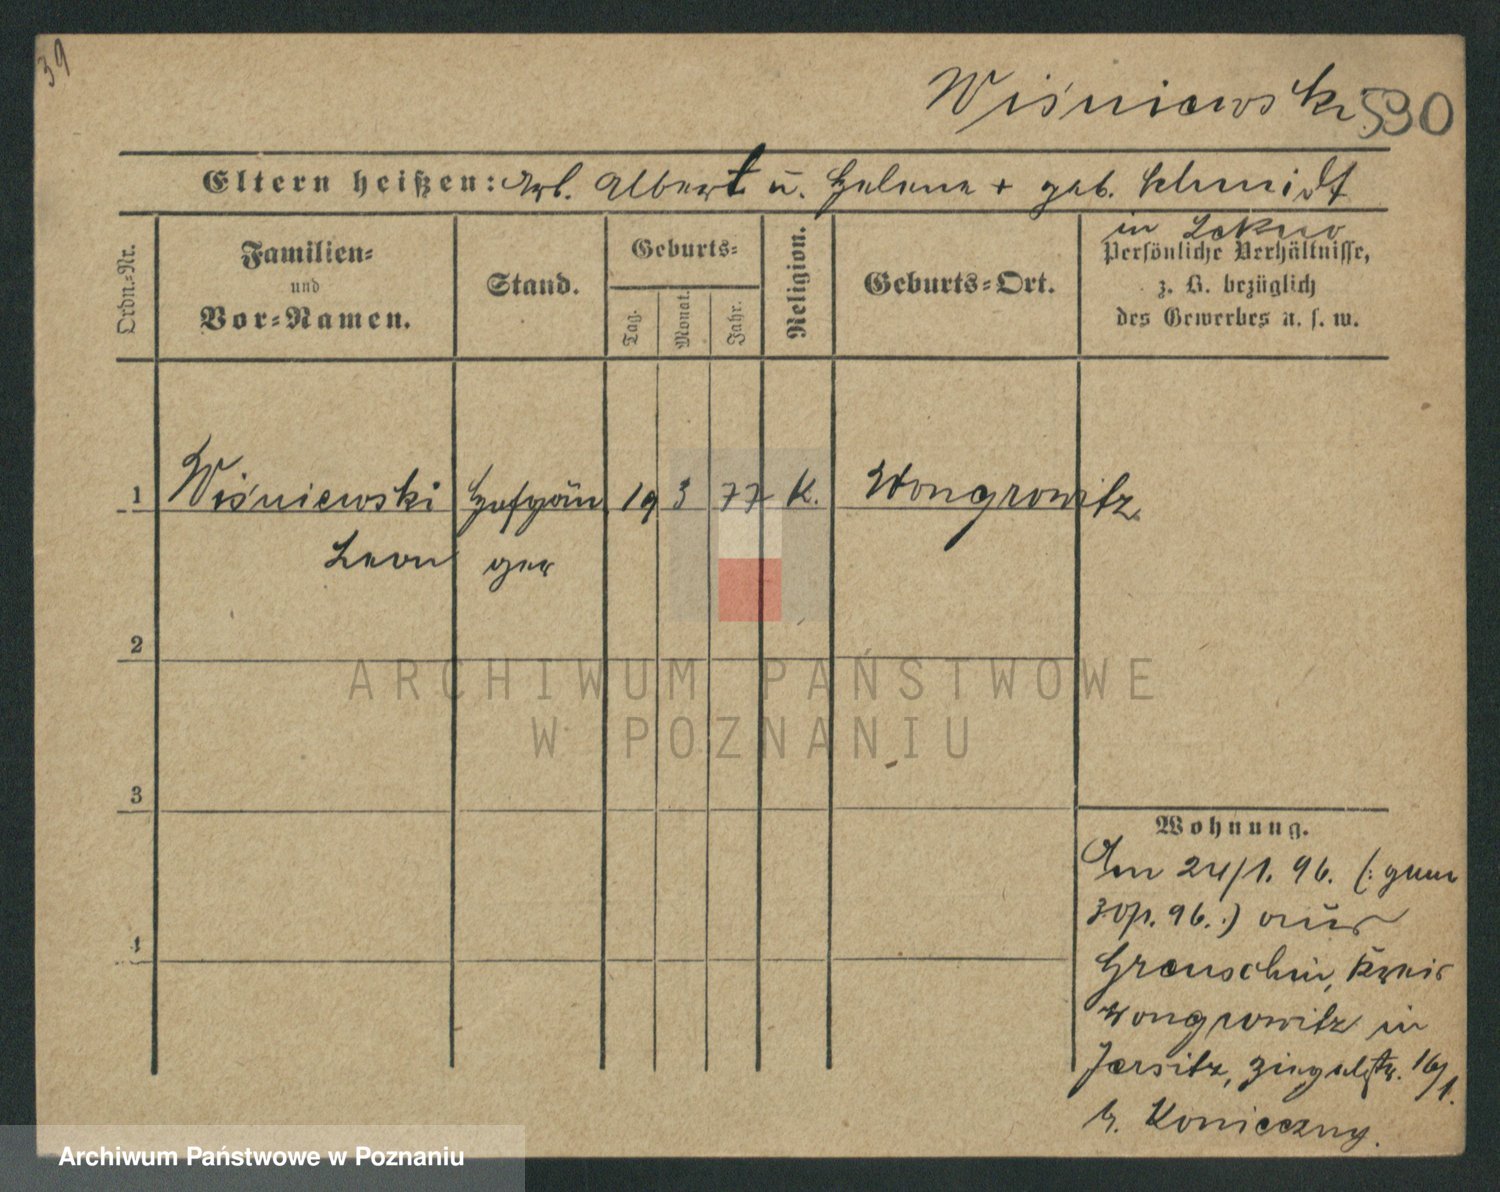 39
Wiśniewski 590
Eltern heißen: Arb. Albert u. Helene + geb. Schmidt
in Lekno
Ordn.-Nr.
Familien-
und
Vor-Namen.
Stand.
Geburts-
Tag.
Monat.
Jahr.
Religion.
Geburts-Ort.
Persönliche Verhältnisse,
z. B. bezüglich
des Gewerbes u. s. w.
1 Wiśniewski 19 3 77 K. Wongrowitz
Leon
2
3
4
ARCHIWUM PAŃSTWOWE
W POZNANIU
Wohnung.
Am 24/1. 96. (: gem
30/1. 96. :) aus
Kreis
Wongrowitz in
Jersitz, Ziegelstr. 16/1.
b. Konieczny.
Archiwum Państwowe w Poznaniu